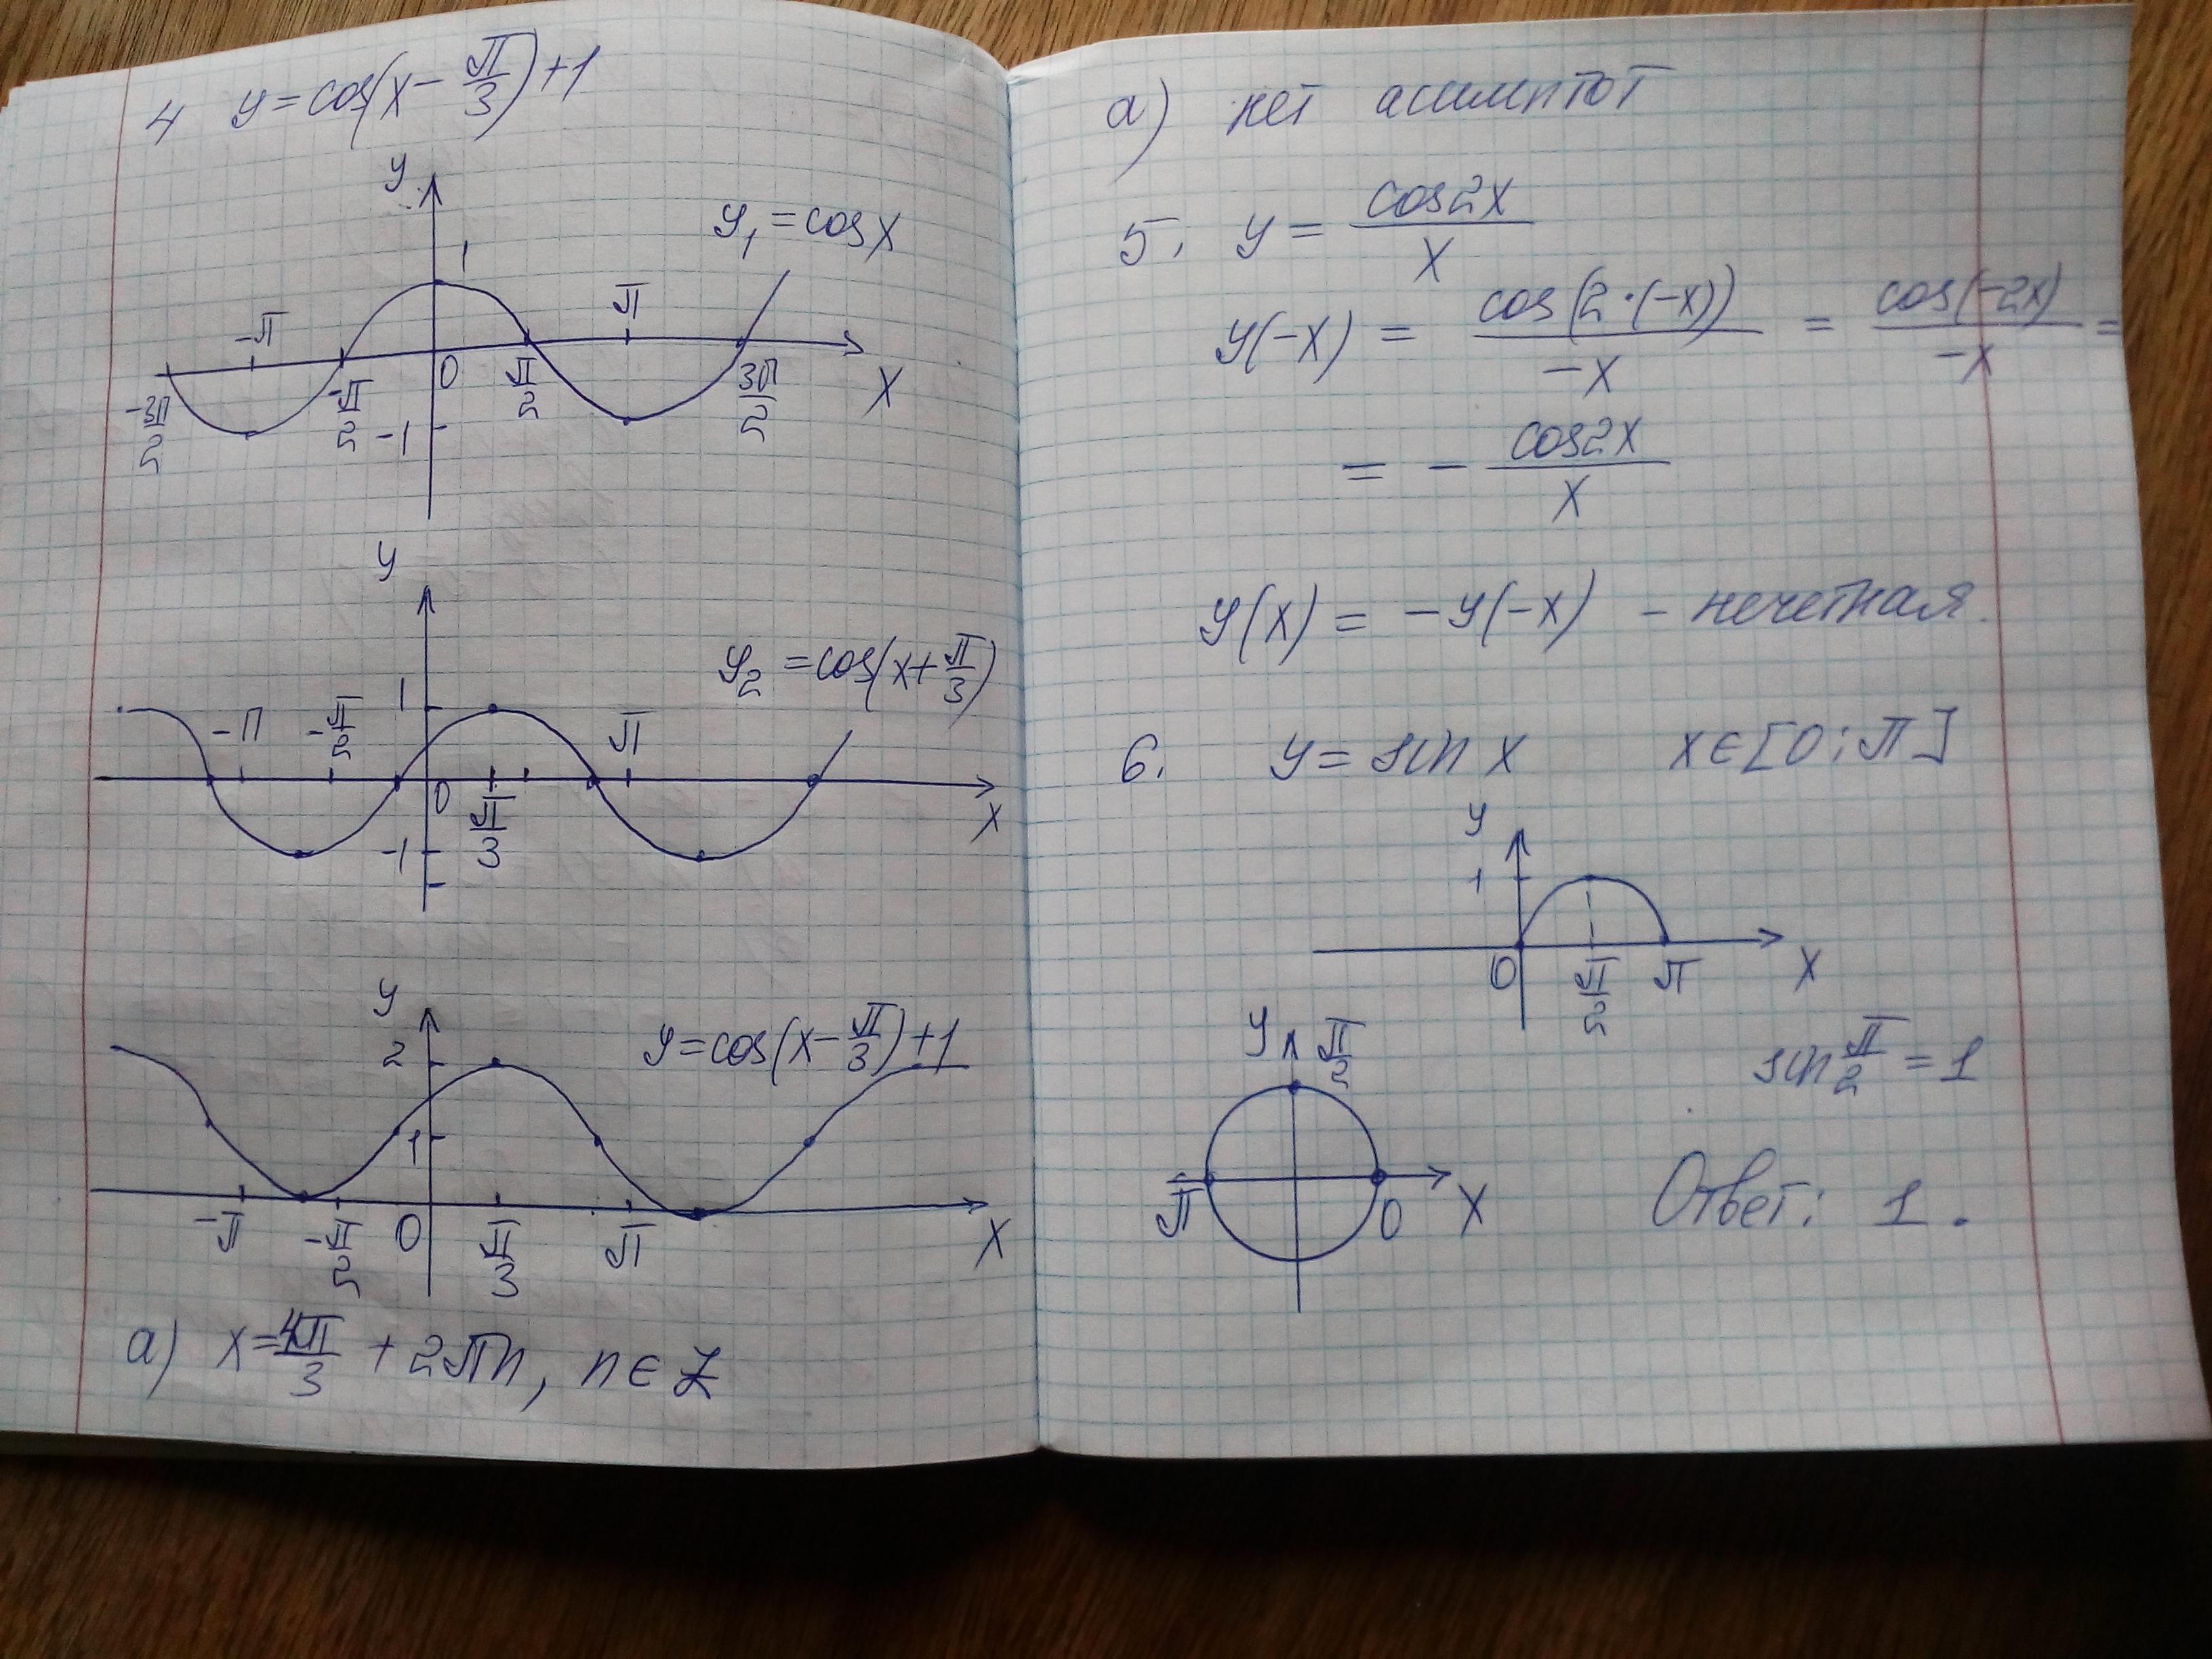 4 y = cos(x - π/3) + 1
y
y₁ = cos x
1
-π
π
0
x
-3π/2
-π/2
π/2
3π/2
-1
y
y₂ = cos(x + π/3)
1
-π
-π/2
π
0
x
π/3
-1
y
2
y = cos(x - π/3) + 1
1
-π
-π/2
0
π/3
π
x
a) x = 4π/3 + 2πn, n ∈ Z
а) нет асимптот
5. y = cos2x/x
y(-x) = cos(2·(-x))/-x = cos(-2x)/-x =
= - cos2x/x
y(x) = -y(-x) - нечетная.
6. y = sin x x ∈ [0; π]
y
1
0
π/2
π
x
y
π/2
sin π/2 = 1
π
0
x
Ответ: 1.